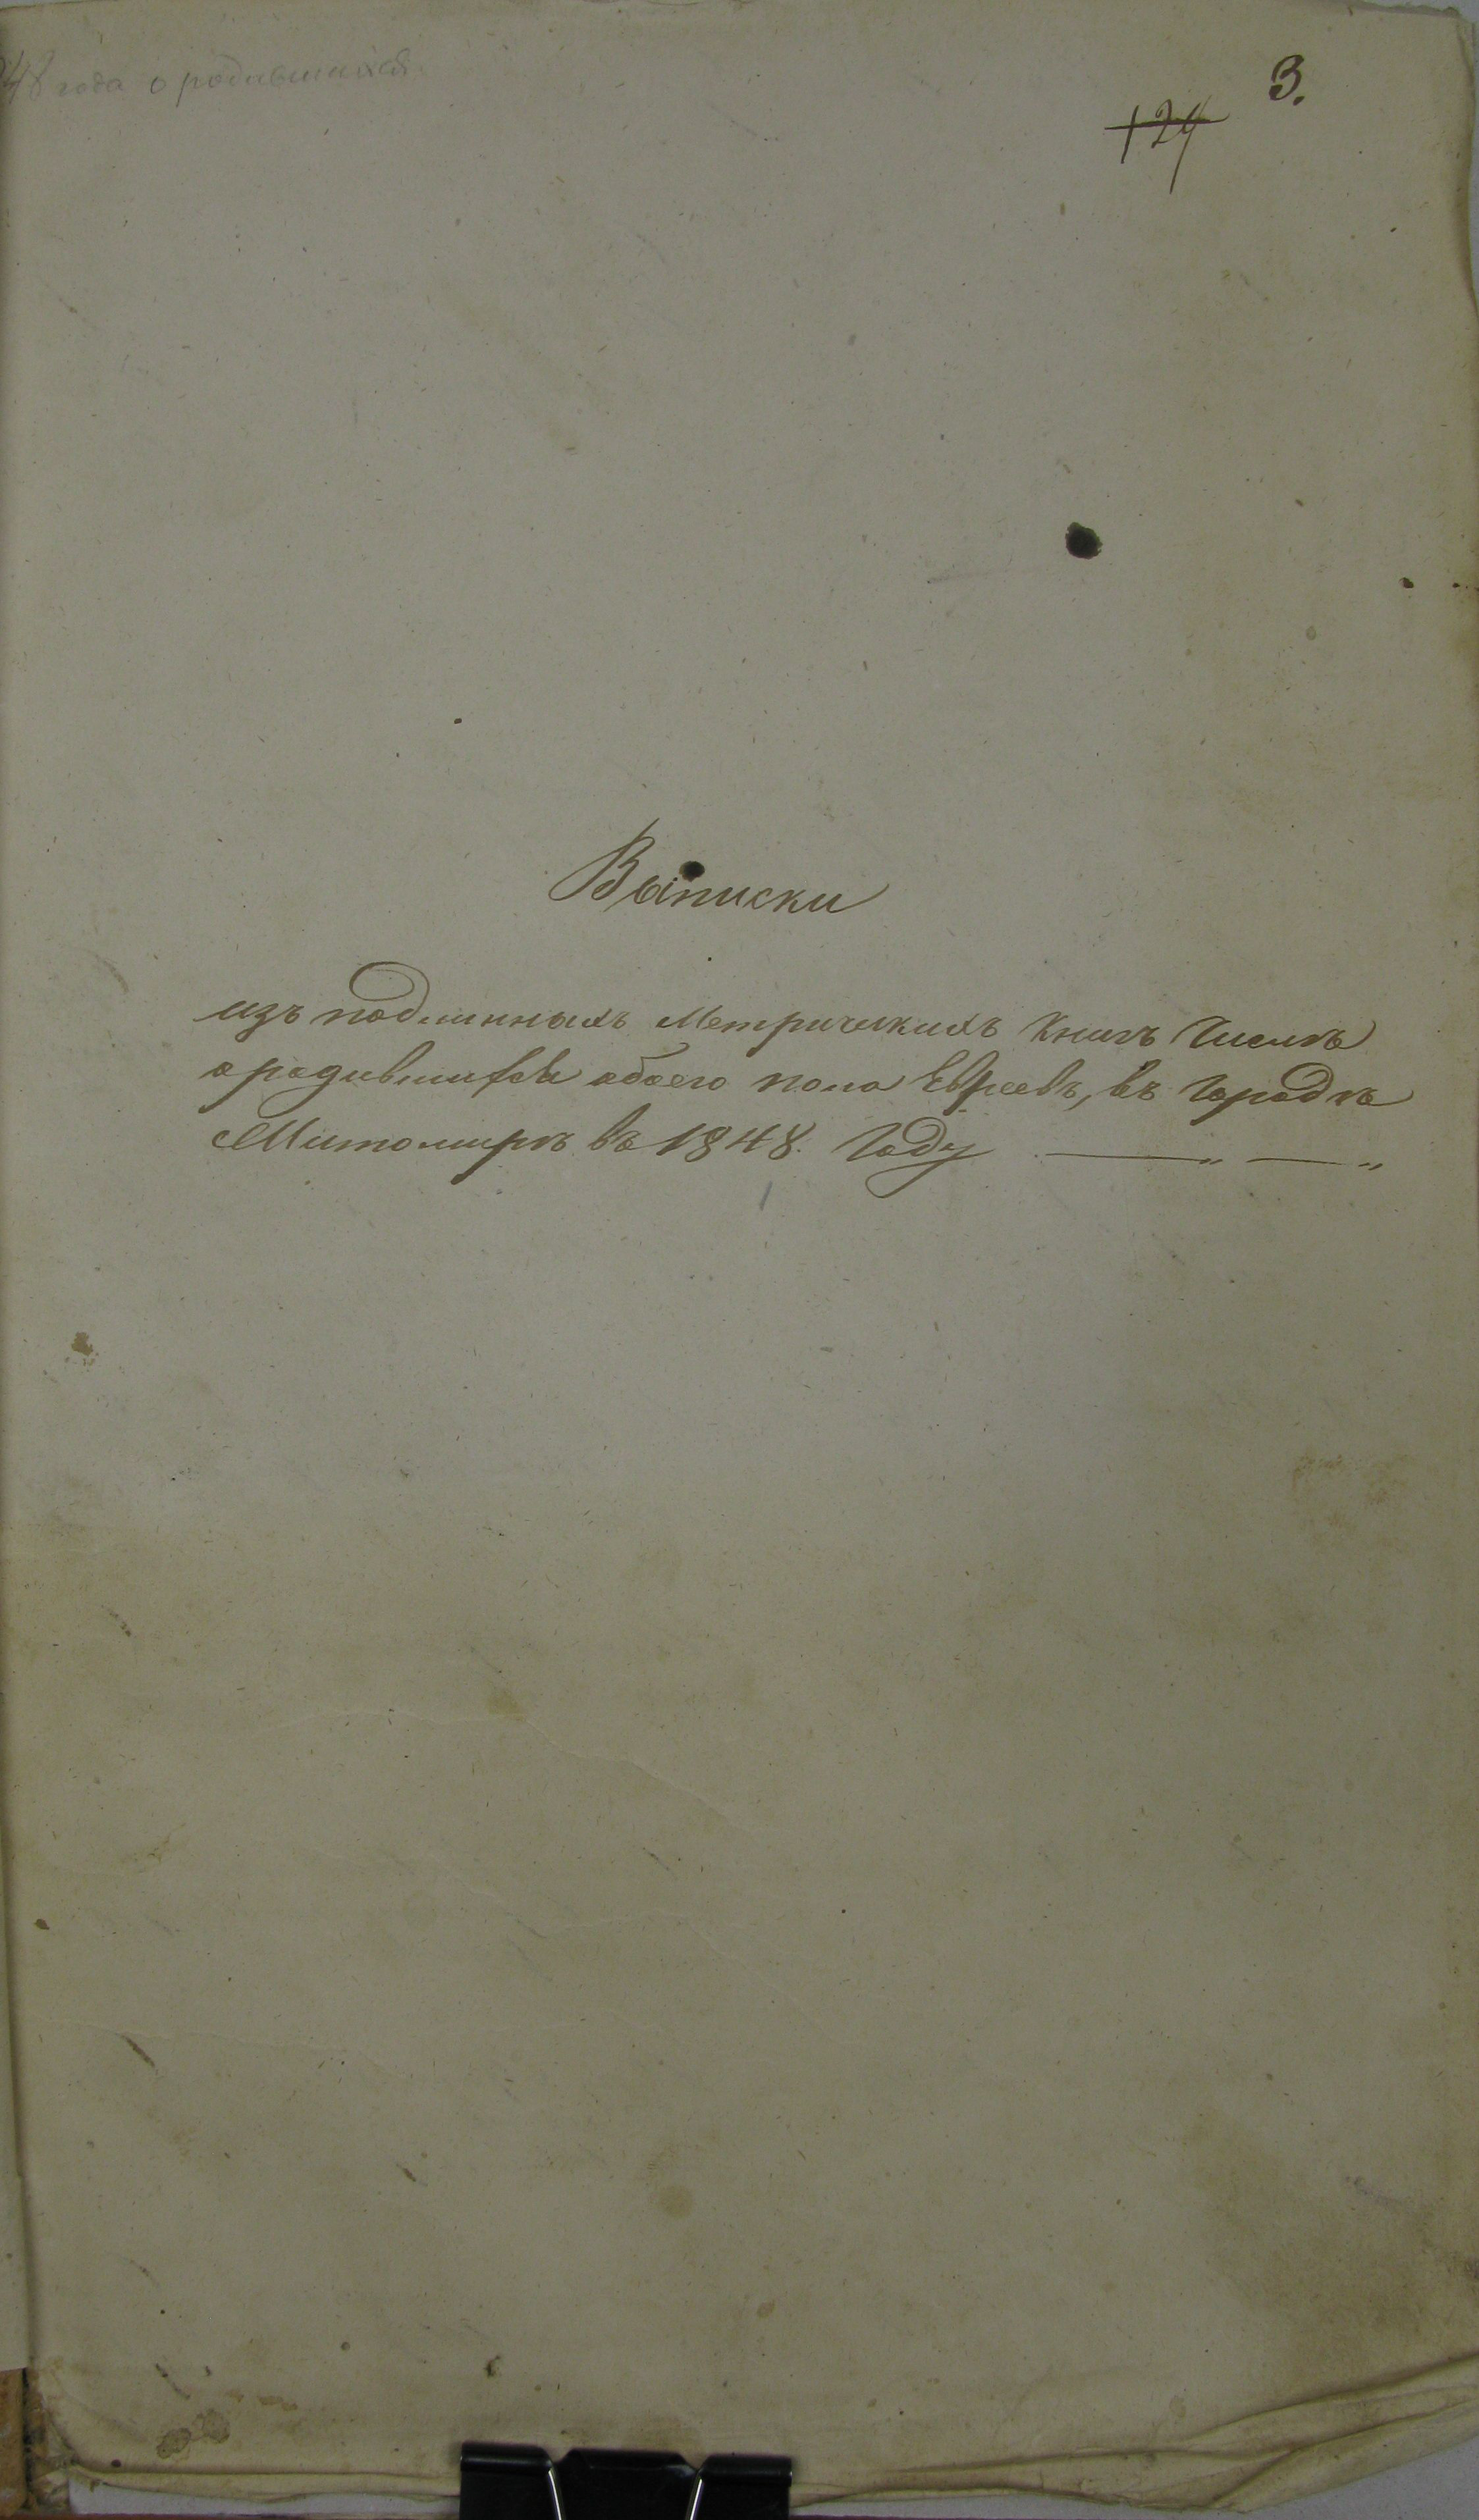 48 года о родившихся
3.
124
Выписки
изъ подлинныхъ Метрическихъ Книгъ
а родившихся абоего пола Евреевъ, въ Городѣ
Житомирѣ въ 1848. Году